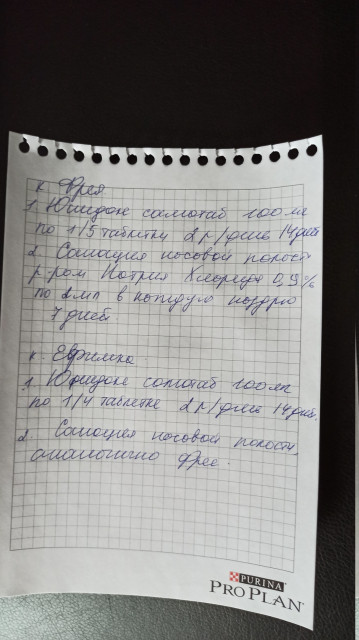 к. Фрея
1. Юнидокс солютаб 100 мг
по 1/5 таблетки 2 р/день 14 дней
2. Санация носовой полости
р-ром Натрия Хлорида 0,9%
по 2 мл в каждую ноздрю
7 дней.
к. Евфимка
1. Юнидокс солютаб 100 мг
по 1/4 таблетке 2 р/день 14 дней.
2. Санация носовой полости,
аналогично Фрее.
PURINA
PRO PLAN